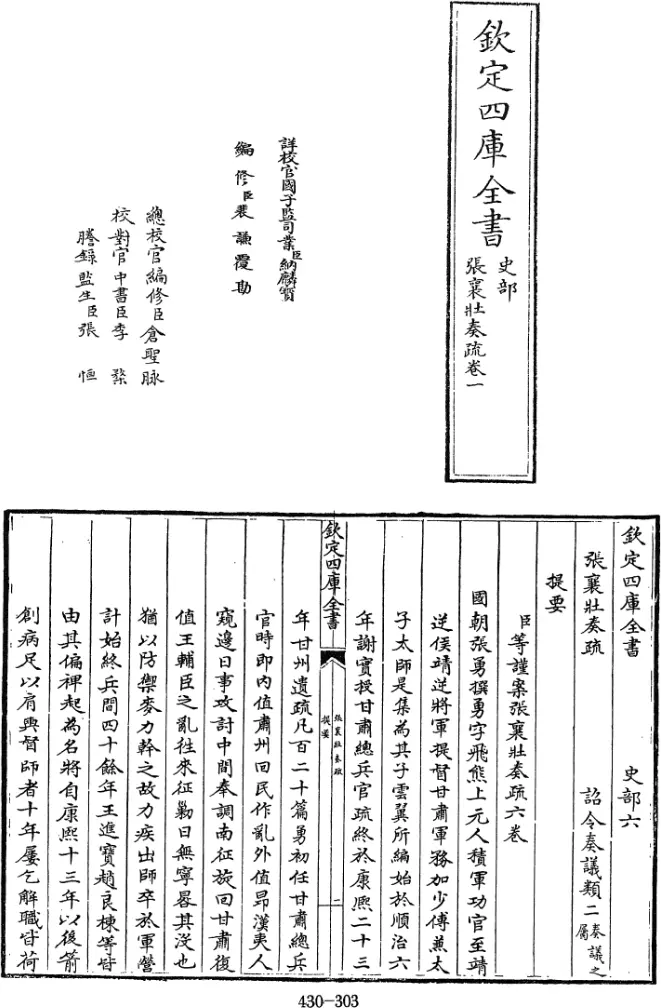 欽定四庫全書
史部
張襄壯奏疏卷一
詳校官國子監司業臣納麟寶
編修臣裴謙覆勘
總校官編修臣倉聖脉
校對官中書臣李棨
謄錄監生臣張恒
欽定四庫全書 史部六
張襄壯奏疏 詔令奏議類二奏議之屬
提要
臣等謹案張襄壯奏疏六卷
國朝張勇撰勇字飛熊上元人積軍功官至靖
逆侯靖逆將軍提督甘肅軍務加少傅兼太
子太師是集為其子雲翼所編始於順治六
年謝實授甘肅總兵官疏終於康熙二十三
欽定四庫全書
張襄壯奏疏
提要
二
年甘州遺疏凡百二十篇勇初任甘肅總兵
官時即内值肅州回民作亂外值昻漢夷人
窺邊日事攻討中間奉調南征旋回甘肅復
值王輔臣之亂往來征勦日無寧晷其沒也
猶以防禦麥力幹之故力疾出師卒於軍營
計始終兵間四十餘年王進寶趙良棟等皆
由其偏裨起為名將自康熙十三年以後箭
創病足以肩輿督師者十年屢乞解職皆荷
430-303